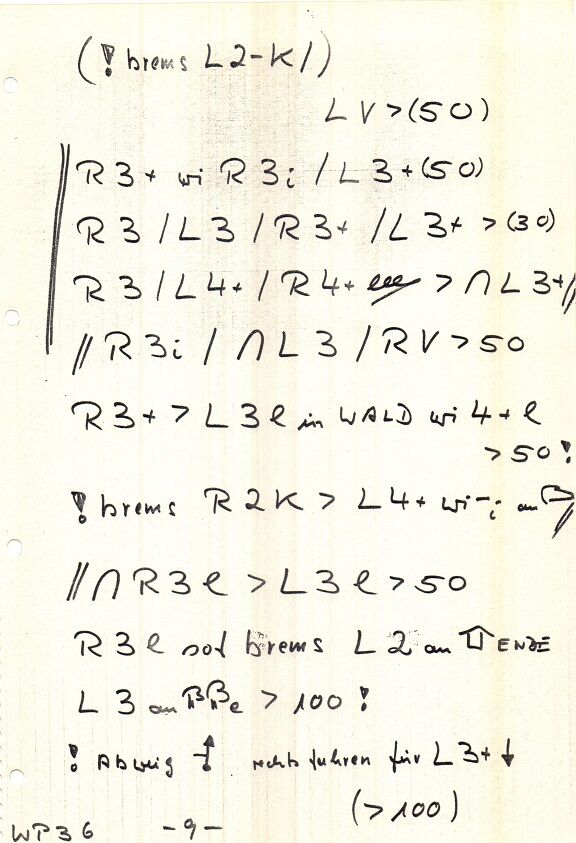 (! brems L2-K/)
LV>(50)
R3+ wi R3i /L3+(50)
R3/L3/R3+/L3+ >(30)
R3/L4+/R4+ > ∩L3+//
//R3i/∩L3/RV>50
R3+>L3l in WALD wi 4+l
>50!
! brems R2K > L4+ wi-i an
//∩R3l >L3l>50
R3l sof brems L2 an ENDE
L3 an >100!
! ABWEIG rechts fahren für L3+ ↓
(>100)
WP36 -9-